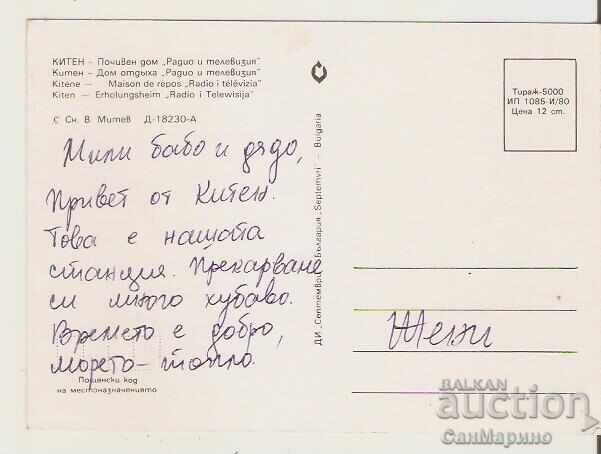 КИТЕН – Почивен дом „Радио и телевизия“
Китен – Дом отдыха „Радио и телевизия“
Kitène – Maison de repos „Radio i télévizia“
Kiten – Erholungsheim „Radio i Telewisija“
© Сн. В. Митев Д-18230-А
Мили бабо и дядо,
Привет от Китен.
Това е нашата
станция. Прекарваме
си много хубаво.
Времето е добро,
морето – топло.
Пощенски код
на местоназначението
ДИ „Септември“, България „Septemvri“ – Bulgaria
Тираж-5000
ИП 1085-И/80
Цена 12 ст.
Жени
BALKAN
auction
СанМарино